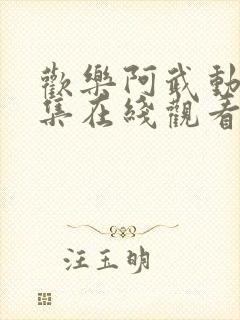 歡樂阿武動
集在綫觀看
汪玉明